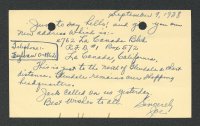 September 9, 1928
Just to say hello! and give you our
new address which is:
2762 La Canada Blvd.
R.F.D. #1 Box 572
La Canada, California.
Telephone:
This is just to the north of Glendale a short
distance. Glendale remains our shopping
headquarters.
Jack called on us yesterday.
Best wishes to all.
Sincerely